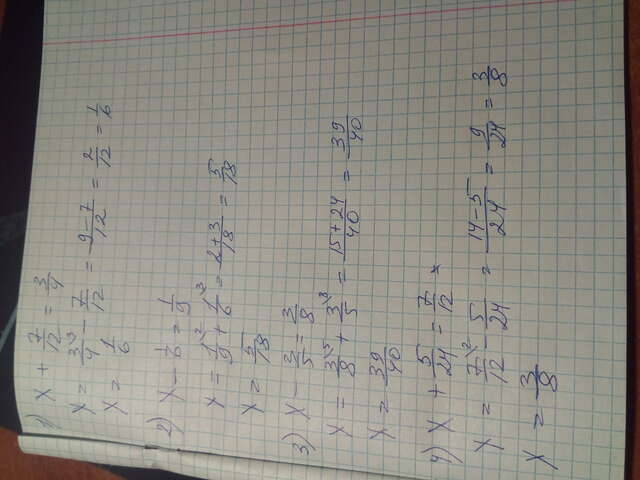 1) x + 7/12 = 3/4
x = 3/4 \3 - 7/12 = 9-7/12 = 2/12 = 1/6
x = 1/6
2) x - 1/6 = 1/9
x = 1/9 \2 + 1/6 \3 = 2+3/18 = 5/18
x = 5/18
3) x - 3/5 = 3/8
x = 3/8 \5 + 3/5 \8 = 15+24/40 = 39/40
x = 39/40
4) x + 5/24 = 7/12
x = 7/12 \2 - 5/24 = 14-5/24 = 9/24 = 3/8
x = 3/8